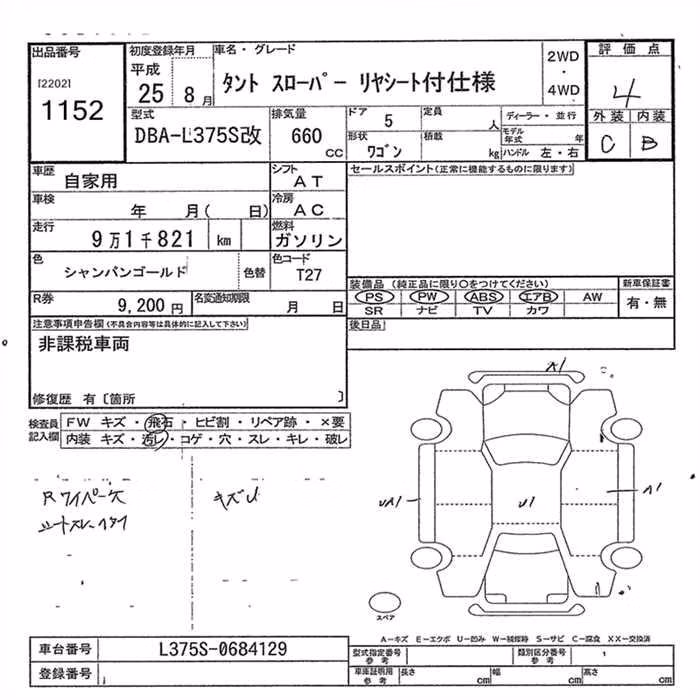 出品番号
[2202]
1152
初度登録年月
平成
25 8月
車名・グレード
タント スローパー リヤシート付仕様
2WD
・
4WD
評価点
4
外装 内装
C B
型式
DBA-L375S改
排気量
660
CC
ドア 5
定員
人
形状
ワゴン
積載
kg
ディーラー・並行
モデル年式 年
ハンドル 左・右
車歴
自家用
シフト
AT
車検
年 月( 日)
冷房
AC
走行
9万1千821 km
燃料
ガソリン
色
シャンパンゴールド
色替
色コード
T27
R券
9,200円
名変通知期限
月 日
セールスポイント(正常に機能するものに限ります)
装備品 (純正品に限り○をつけてください)
PS PW ABS エアB AW
SR ナビ TV カワ
新車保証書
有・無
後日品
注意事項申告欄(不具合内容等は具体的に記入して下さい)
非課税車両
修復歴 有〔箇所 〕
検査員記入欄
FW キズ・飛石・ヒビ割・リペア跡・×要
内装 キズ・汚レ・コゲ・穴・スレ・キレ・破レ
Rワイパー欠
キズU
A1
UA1
U1
A1
スペア
A−キズ E−エクボ U−凹み W−補修跡 S−サビ C−腐食 XX−交換済
車台番号
L375S-0684129
登録番号
型式指定番号
参考
類別区分番号
参考
車庫証明用
参考
長さ cm 幅 cm 高さ cm